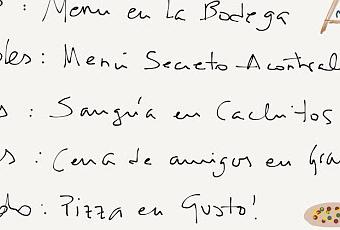 : Menu en La Bodega
les: Menú Secreto-Acontral
s : Sangría en Cachitos
s : Cena de amigos en Gra
do: Pizza en Gusto!